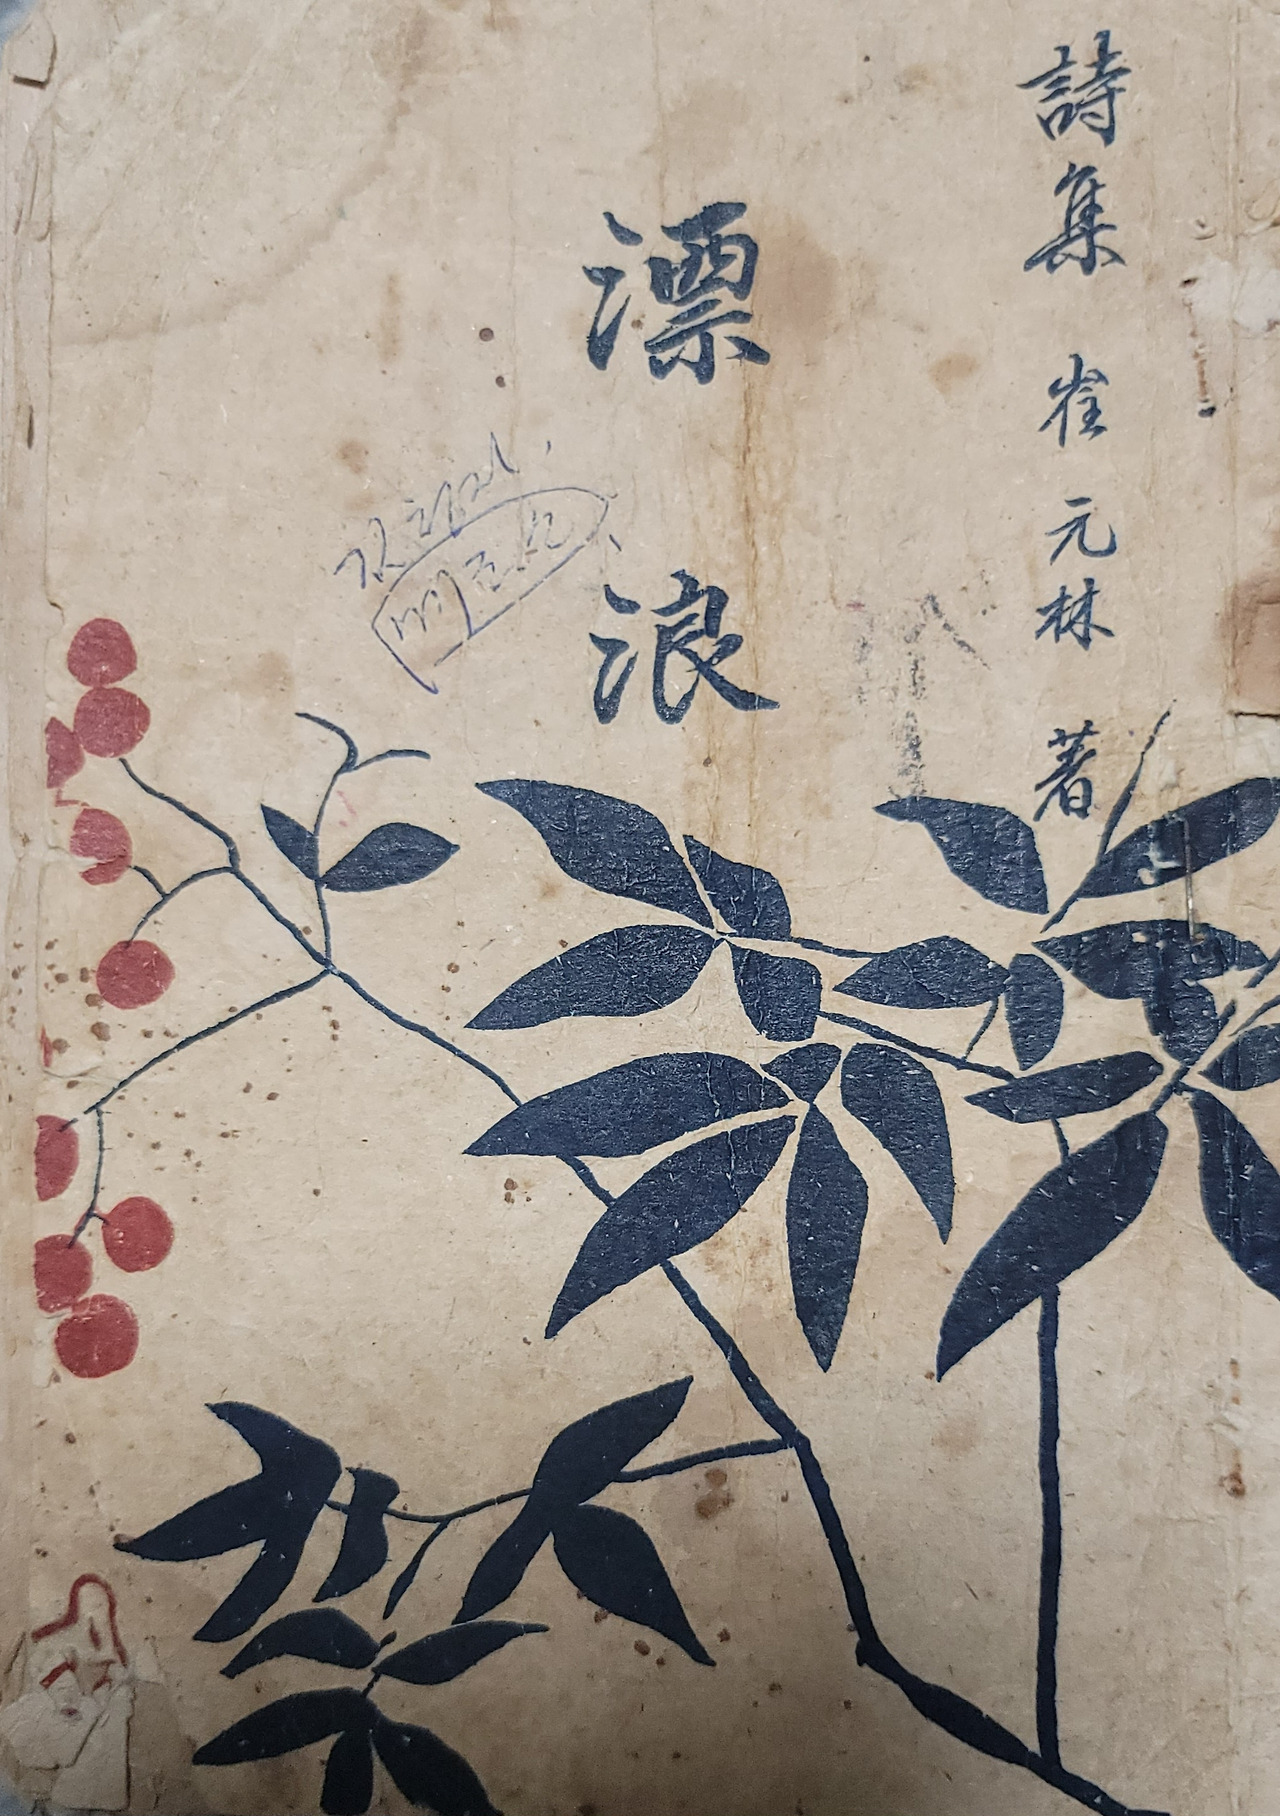 詩集 崔元林 著
漂浪